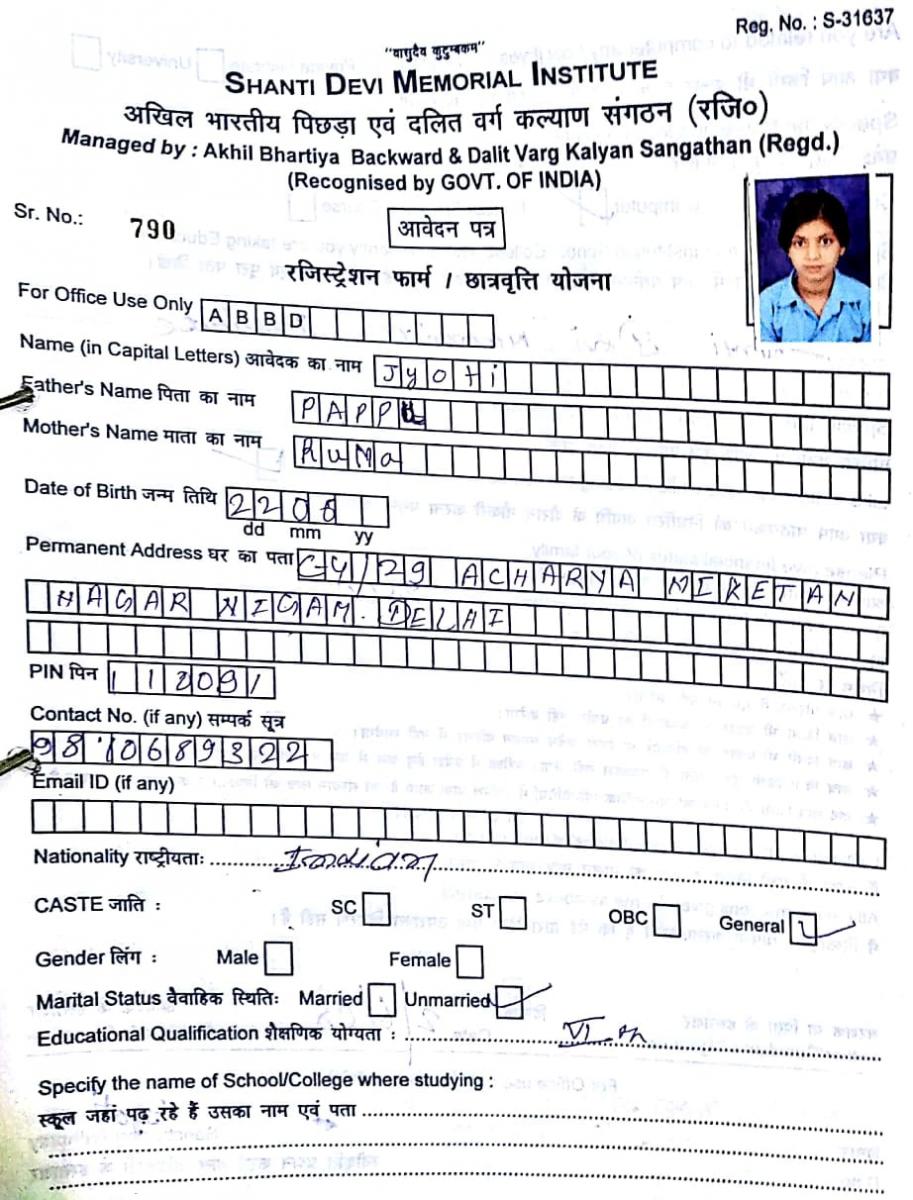 Reg. No. : S-31637
"वासुदैव कुटुम्बकम"
SHANTI DEVI MEMORIAL INSTITUTE
अखिल भारतीय पिछड़ा एवं दलित वर्ग कल्याण संगठन (रजि०)
Managed by : Akhil Bhartiya Backward & Dalit Varg Kalyan Sangathan (Regd.)
(Recognised by GOVT. OF INDIA)
Sr. No.: 790
आवेदन पत्र
रजिस्ट्रेशन फार्म / छात्रवृत्ति योजना
For Office Use Only ABBD
Name (in Capital Letters) आवेदक का नाम Jyoti
Father's Name पिता का नाम PAPPU
Mother's Name माता का नाम RuMa
Date of Birth जन्म तिथि
dd mm yy
Permanent Address घर का पता C-4/29 ACHARYA NIKETAN
NAGAR NIGAM. DELHI
PIN पिन 110091
Contact No. (if any) सम्पर्क सूत्र
9810689322
Email ID (if any)
Nationality राष्ट्रीयताः Indian
CASTE जाति : SC ST OBC General
Gender लिंग : Male Female
Marital Status वैवाहिक स्थितिः Married Unmarried
Educational Qualification शैक्षणिक योग्यता : VI th
Specify the name of School/College where studying :
स्कूल जहां पढ़ रहे हैं उसका नाम एवं पता